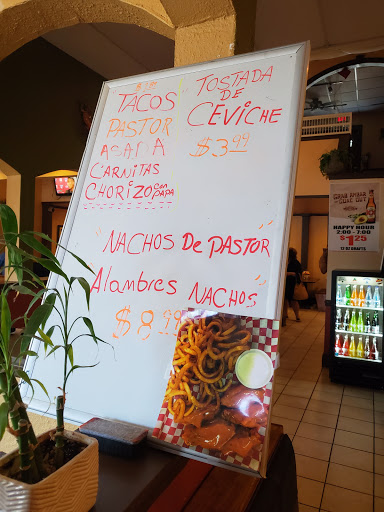 TACOS
PASTOR
ASADA
CARNITAS
CHORIZO con PAPA
TOSTADA
DE
CEVICHE
$3.99
NACHOS De PASTOR
Alambres NACHOS
$8.99
HAPPY HOUR
2:00 - 7:00
$1.25
12 OZ DRAFTS